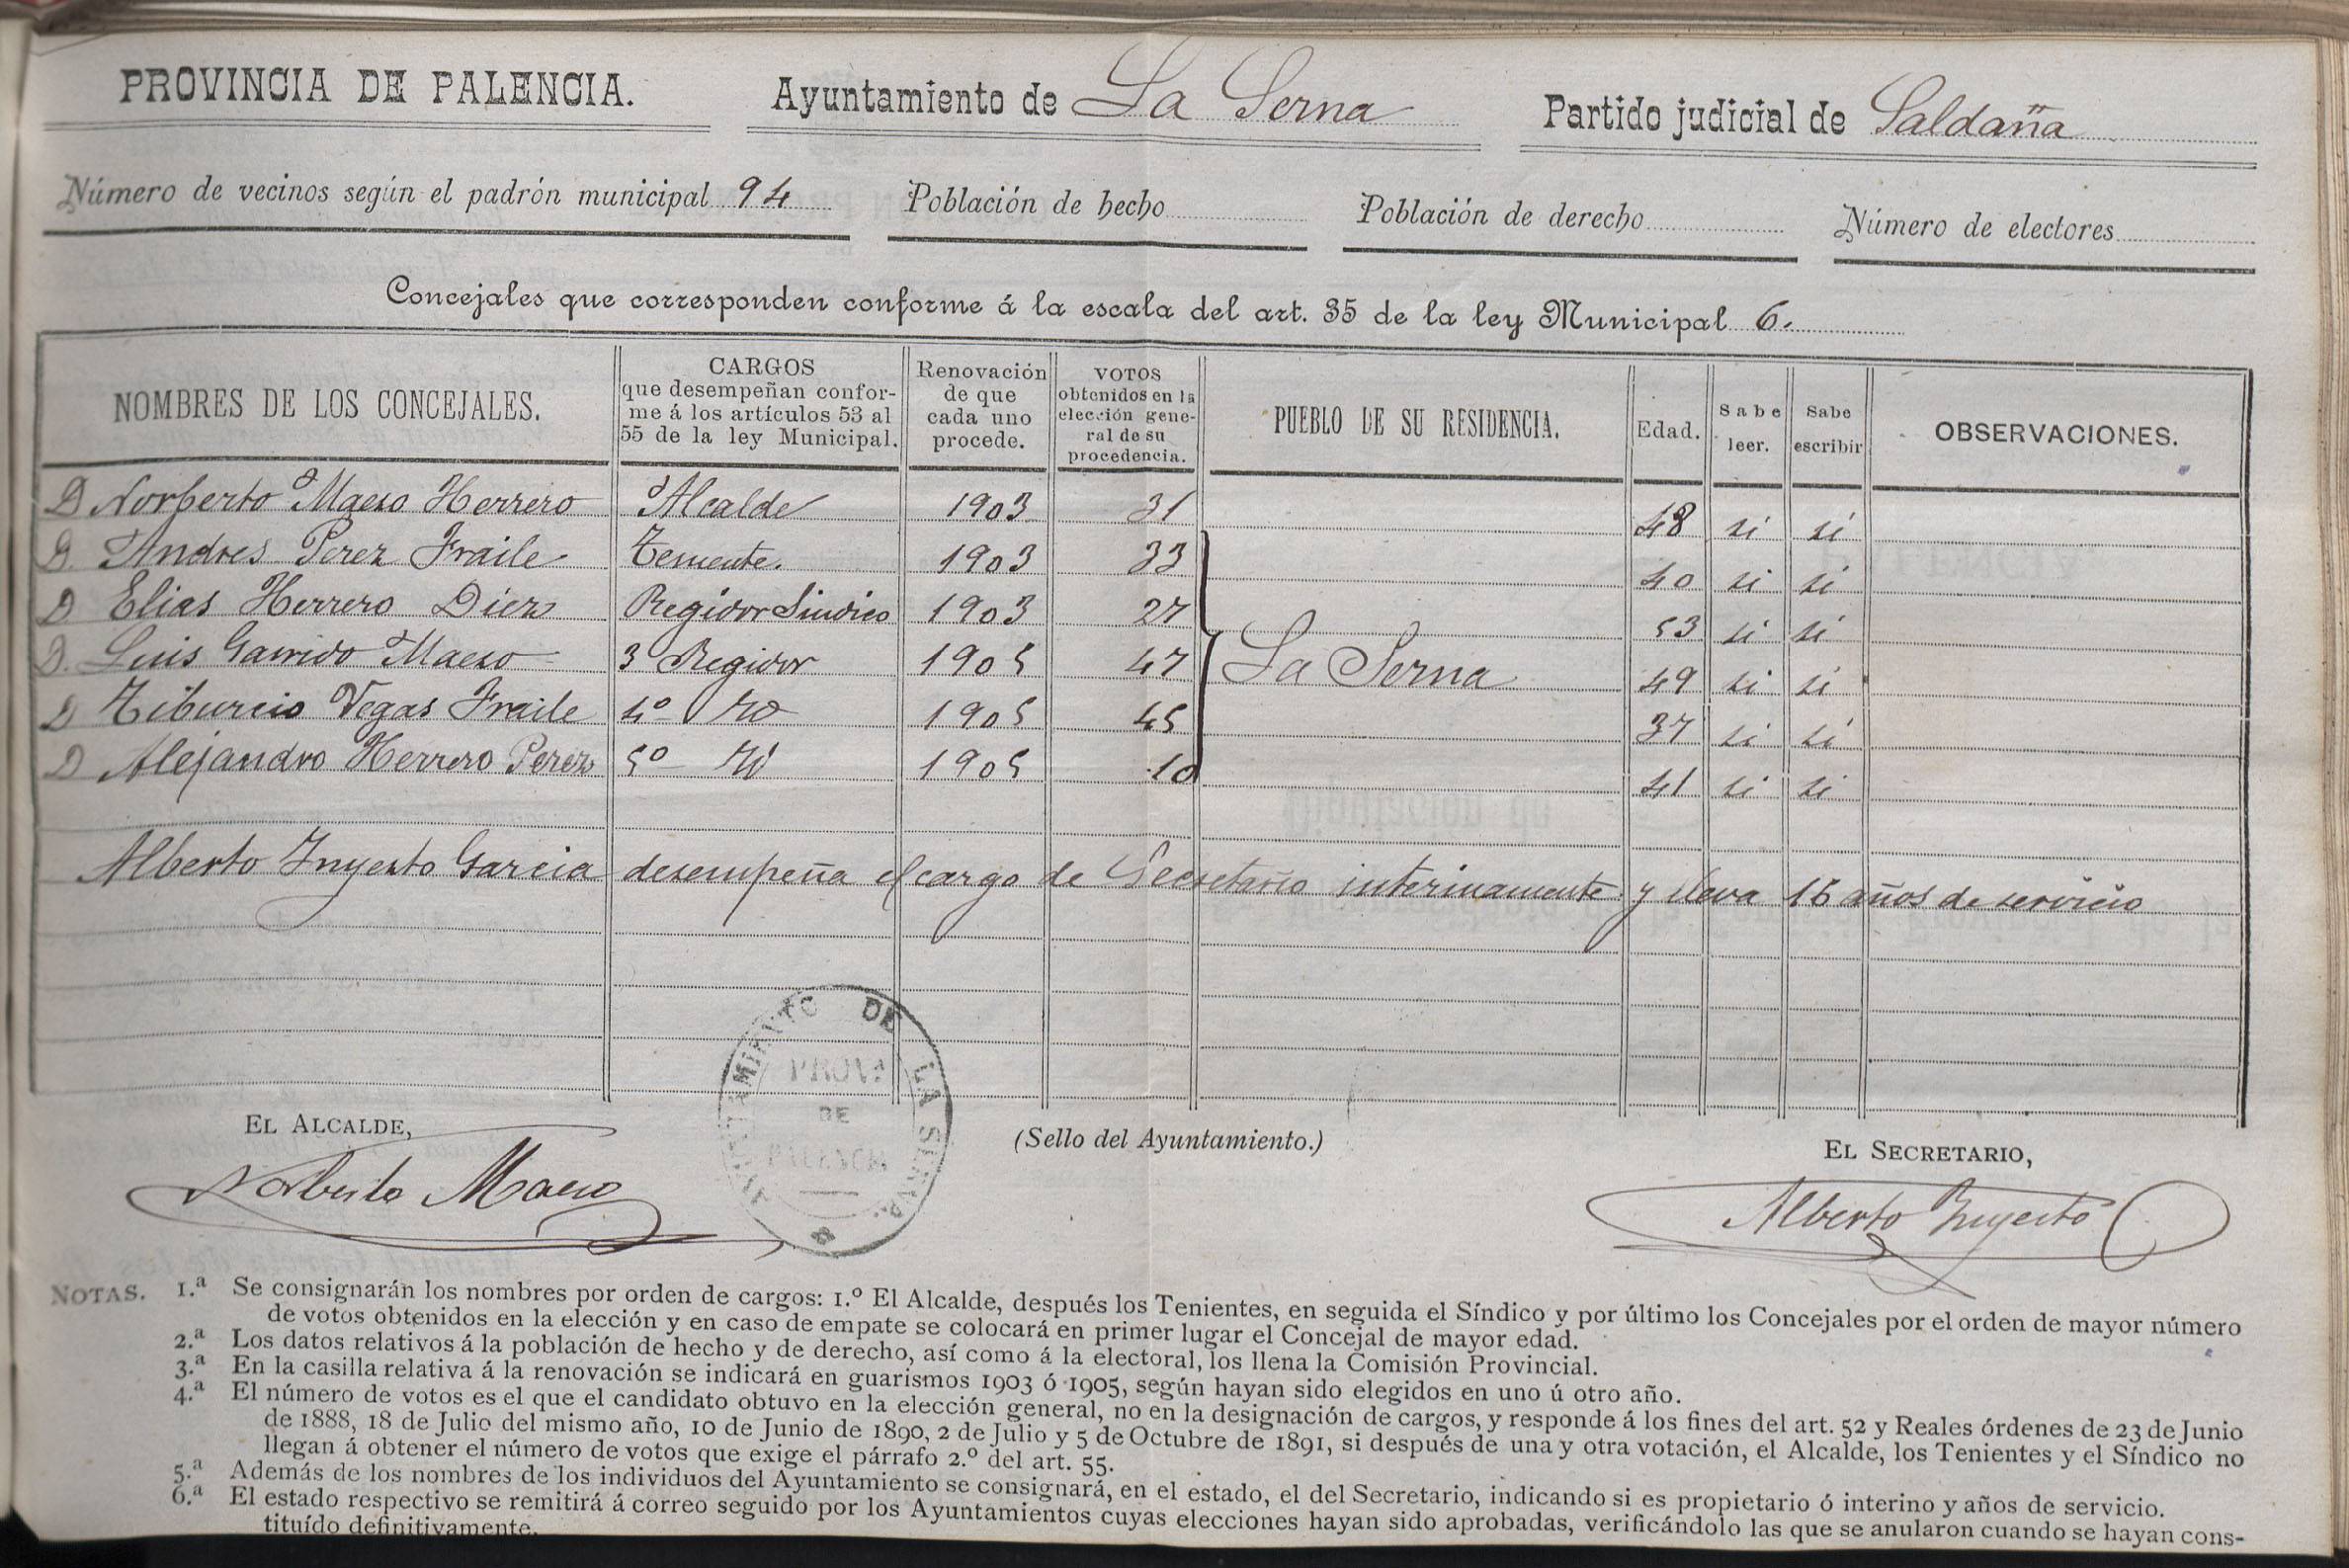 PROVINCIA DE PALENCIA. Ayuntamiento de La Serna Partido judicial de Saldaña
Número de vecinos según el padrón municipal 94 Población de hecho Población de derecho Número de electores
Concejales que corresponden conforme á la escala del art. 35 de la ley Municipal 6.
NOMBRES DE LOS CONCEJALES. CARGOS que desempeñan confor- me á los artículos 53 al 55 de la ley Municipal. Renovación de que cada uno procede. VOTOS obtenidos en la elección gene- ral de su procedencia. PUEBLO DE SU RESIDENCIA. Edad. Sabe leer. Sabe escribir OBSERVACIONES.
D Norberto Maeso Herrero Alcalde 1903 31 48 si si
D. Andres Perez Fraile Teniente. 1903 33 40 si si
D Elias Herrero Diez Regidor Sindico 1903 27 53 si si
D. Luis Garrido Maeso 3 Regidor 1905 47 La Serna 49 si si
D Tiburcio Vegas Fraile 4º id 1905 45 37 si si
D Alejandro Herrero Perez 5º id 1905 10 41 si si
Alberto Inyesto Garcia desempeña el cargo de Secretario interinamente y lleva 16 años de servicio
AYUNTAMIENTO DE LA SERNA.
PROVA
DE
PALENCIA
EL ALCALDE,
(Sello del Ayuntamiento.)
EL SECRETARIO,
Norberto Maeso
Alberto Inyesto
NOTAS. 1.ª Se consignarán los nombres por orden de cargos: 1.º El Alcalde, después los Tenientes, en seguida el Síndico y por último los Concejales por el orden de mayor número
de votos obtenidos en la elección y en caso de empate se colocará en primer lugar el Concejal de mayor edad.
2.ª Los datos relativos á la población de hecho y de derecho, así como á la electoral, los llena la Comisión Provincial.
3.ª En la casilla relativa á la renovación se indicará en guarismos 1903 ó 1905, según hayan sido elegidos en uno ú otro año.
4.ª El número de votos es el que el candidato obtuvo en la elección general, no en la designación de cargos, y responde á los fines del art. 52 y Reales órdenes de 23 de Junio
de 1888, 18 de Julio del mismo año, 10 de Junio de 1890, 2 de Julio y 5 de Octubre de 1891, si después de una y otra votación, el Alcalde, los Tenientes y el Síndico no
llegan á obtener el número de votos que exige el párrafo 2.º del art. 55.
5.ª Además de los nombres de los individuos del Ayuntamiento se consignará, en el estado, el del Secretario, indicando si es propietario ó interino y años de servicio.
6.ª El estado respectivo se remitirá á correo seguido por los Ayuntamientos cuyas elecciones hayan sido aprobadas, verificándolo las que se anularon cuando se hayan cons-
tituído definitivamente.